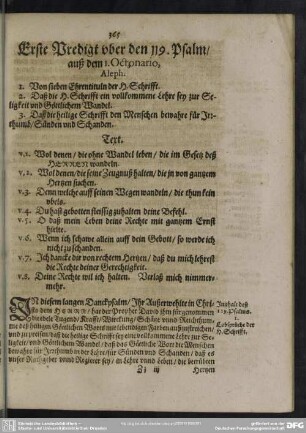 365
Erste Predigt vber den 119. Psalm/
auß dem 1. Octonario,
Aleph.
1. Von sieben Ehrentituln der H. Schrifft.
2. Daß die H. Schrifft ein vollkommene Lehre sey zur Se-
ligkeit vnd Göttlichem Wandel.
3. Daß die heilige Schrifft den Menschen bewahre für Jr-
thumb/ Sünden vnd Schanden.
Text.
v.1. Wol denen/ die ohne Wandel leben/ die im Gesetz deß
HERREN wandeln.
v.2. Wol denen/ die seine Zeugnuß halten/ die jn von gantzem
Hertzen suchen.
v.3. Denn welche auff seinen Wegen wandeln/ die thun kein
vbels.
v.4. Du hast gebotten fleissig zuhalten deine Befehl.
v.5. O daß mein Leben deine Rechte mit gantzem Ernst
hielte.
v.6. Wenn ich schawe allein auff dein Gebott/ so werde ich
nicht zu schanden.
v.7. Jch dancke dir von rechtem Hertzen/ daß du mich lehrest
die Rechte deiner Gerechtigkeit.
v.8. Deine Rechte wil ich halten. Verlaß mich nimmer-
mehr.
JN diesem langen Danckpsalm/ Jhr Außerwehlte in Chri-
sto dem HERRN/ hat der Prophet David jhm fürgenommen
die edele Tugend/ Krafft/ Wirckung/ Schätze vnnd Reichthum-
me deß heiligen Göttlichen Worts mit lebendigen Farben außzustreichen/
vnd zu
Lehre zur Seligkeit
vnnd Göttlichem Wandel/ vnd daß das Göttliche Wort die Menschen
bewahre für Jrrthumb in der Lehr/ für Sünden vnd Schanden/ daß es
vnser Rathgeber vnnd Regierer sey/ in Lehre vnnd Leben/ die betrübten
Inhalt deß
119. Psalms.
1.
Lobsprüche der
H. Schrifft.
Zz iij
Hertzen